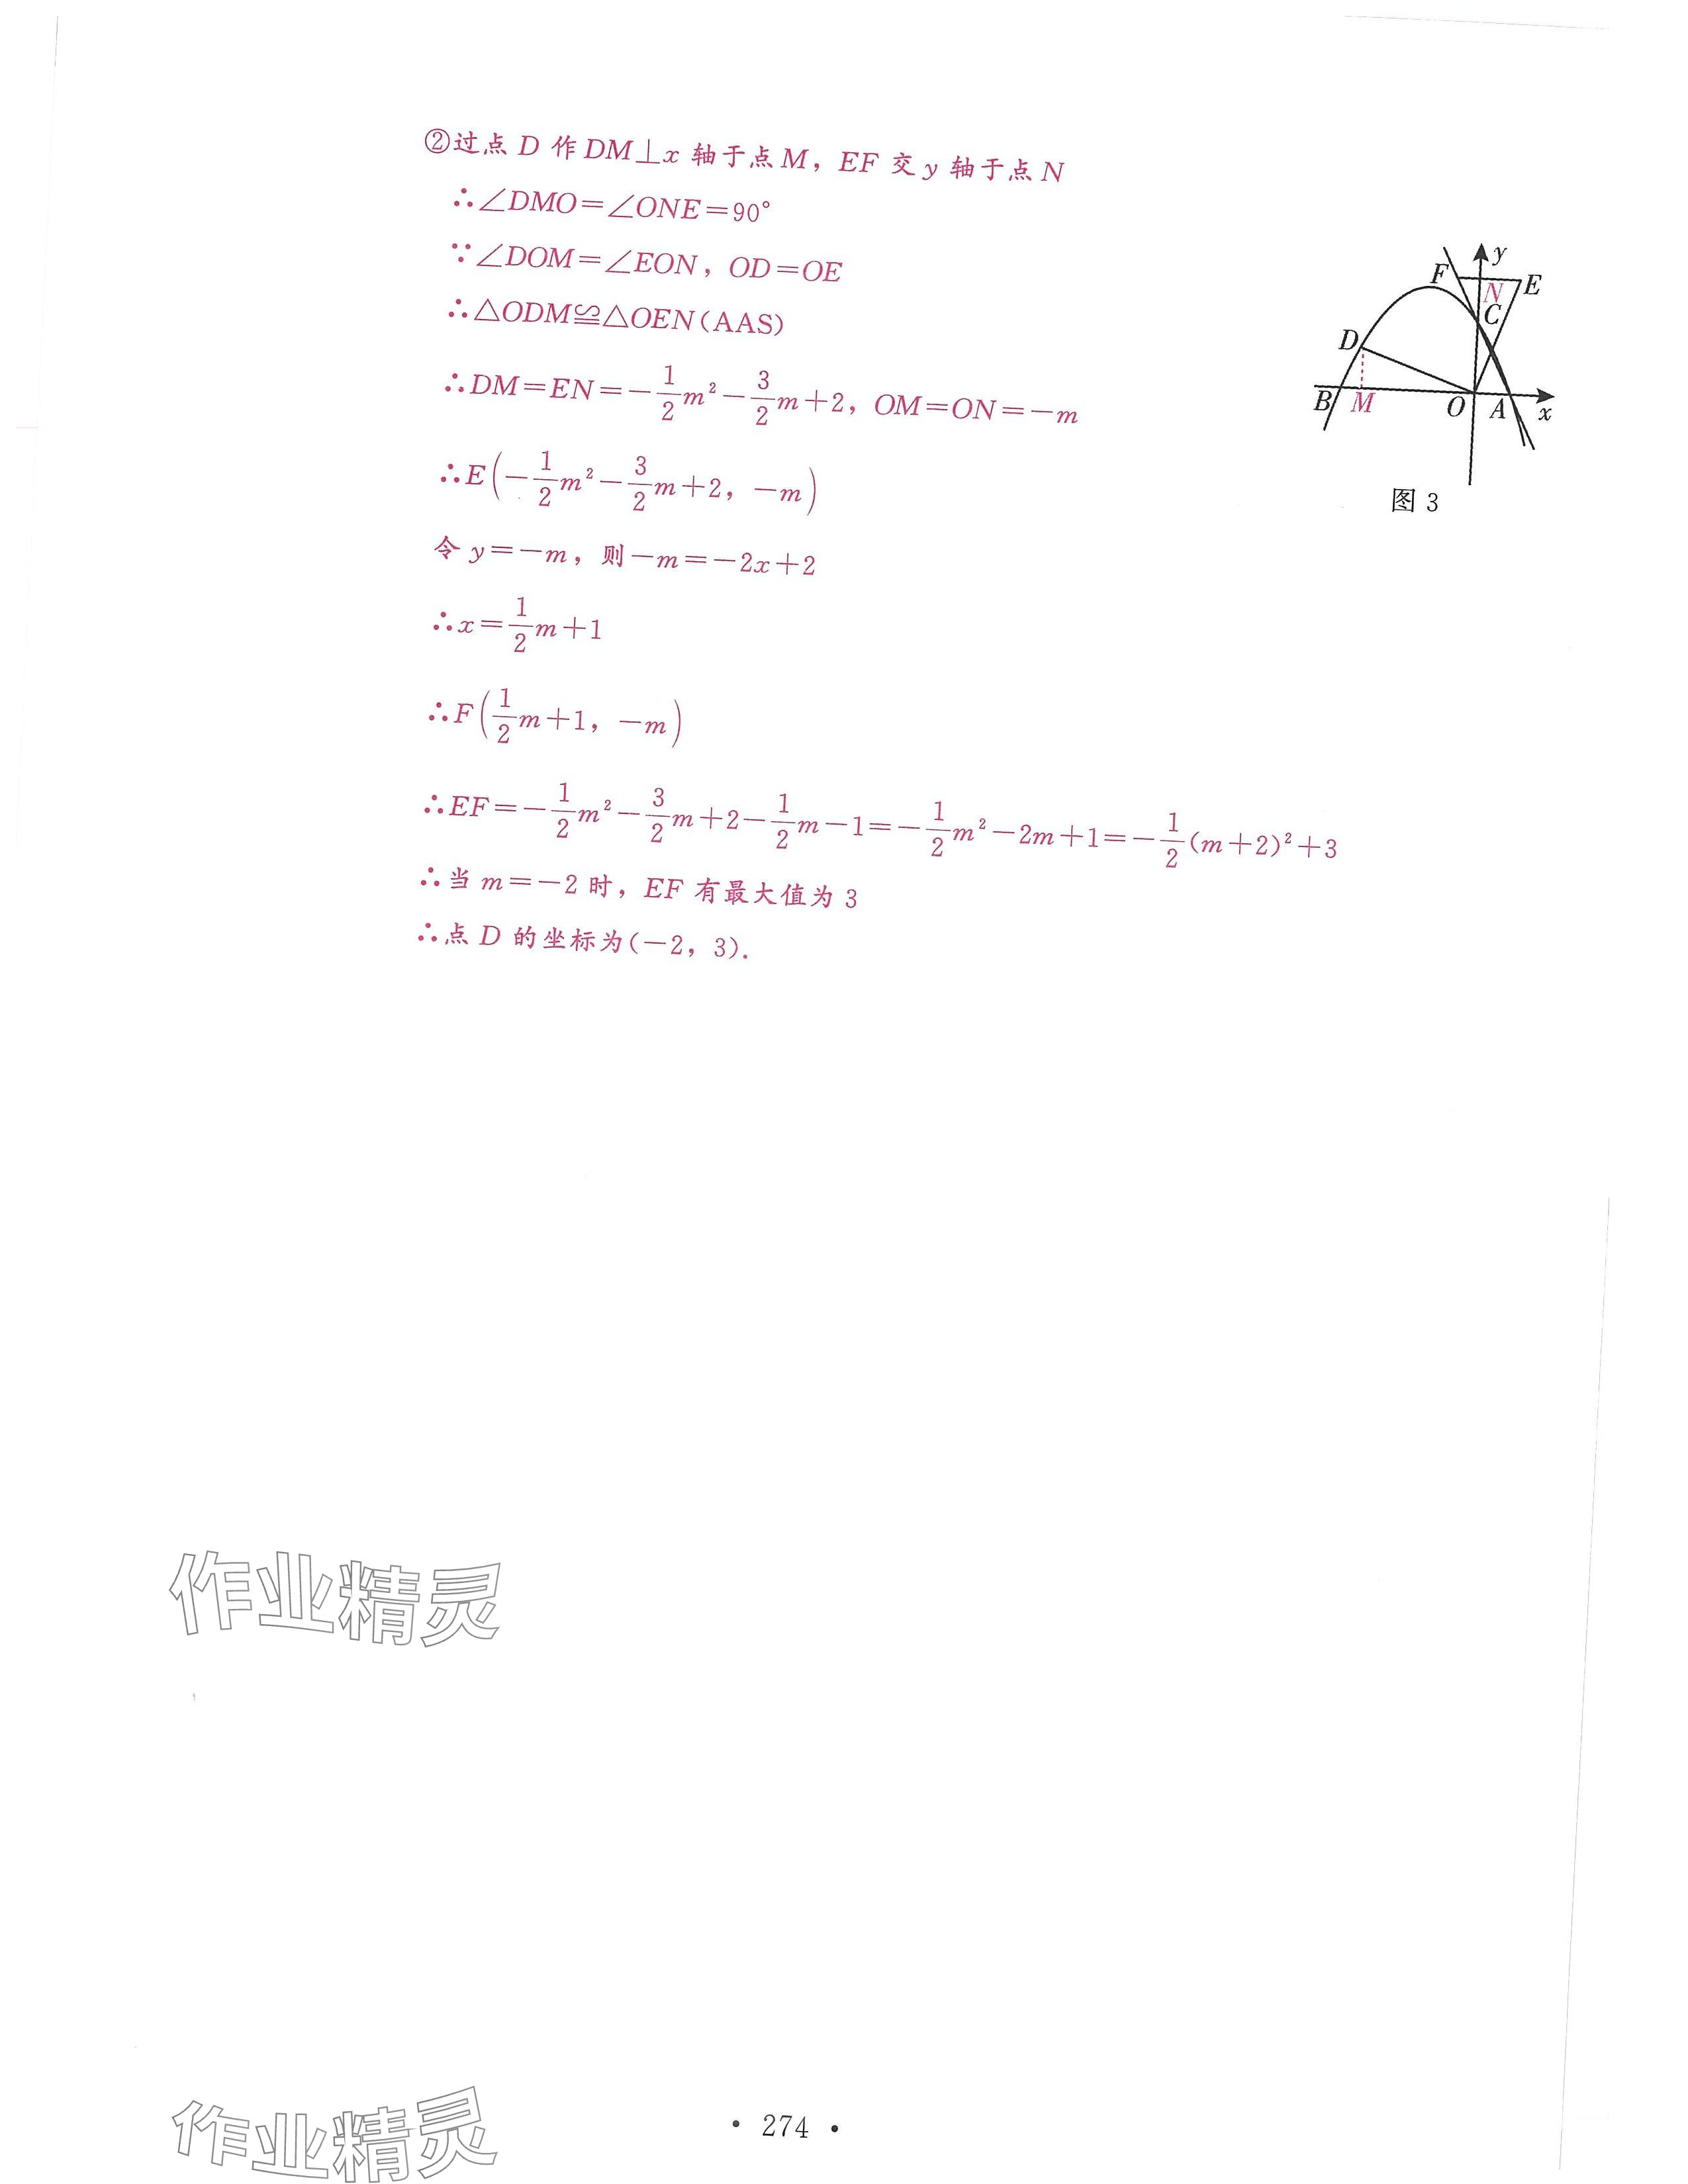 ②过点 D 作 DM⊥x 轴于点 M，EF 交 y 轴于点 N
∴∠DMO=∠ONE=90°
∵∠DOM=∠EON，OD=OE
∴△ODM≌△OEN(AAS)
∴DM=EN=-\frac{1}{2}m²-\frac{3}{2}m+2，OM=ON=-m
∴E(-\frac{1}{2}m²-\frac{3}{2}m+2，-m)
令 y=-m，则-m=-2x+2
∴x=\frac{1}{2}m+1
∴F(\frac{1}{2}m+1，-m)
∴EF=-\frac{1}{2}m²-\frac{3}{2}m+2-\frac{1}{2}m-1=-\frac{1}{2}m²-2m+1=-\frac{1}{2}(m+2)²+3
∴当 m=-2 时，EF 有最大值为 3
∴点 D 的坐标为(-2，3).
y
F
N
E
C
D
B
M
O
A
x
图 3
作业精灵
作业精灵
· 274 ·